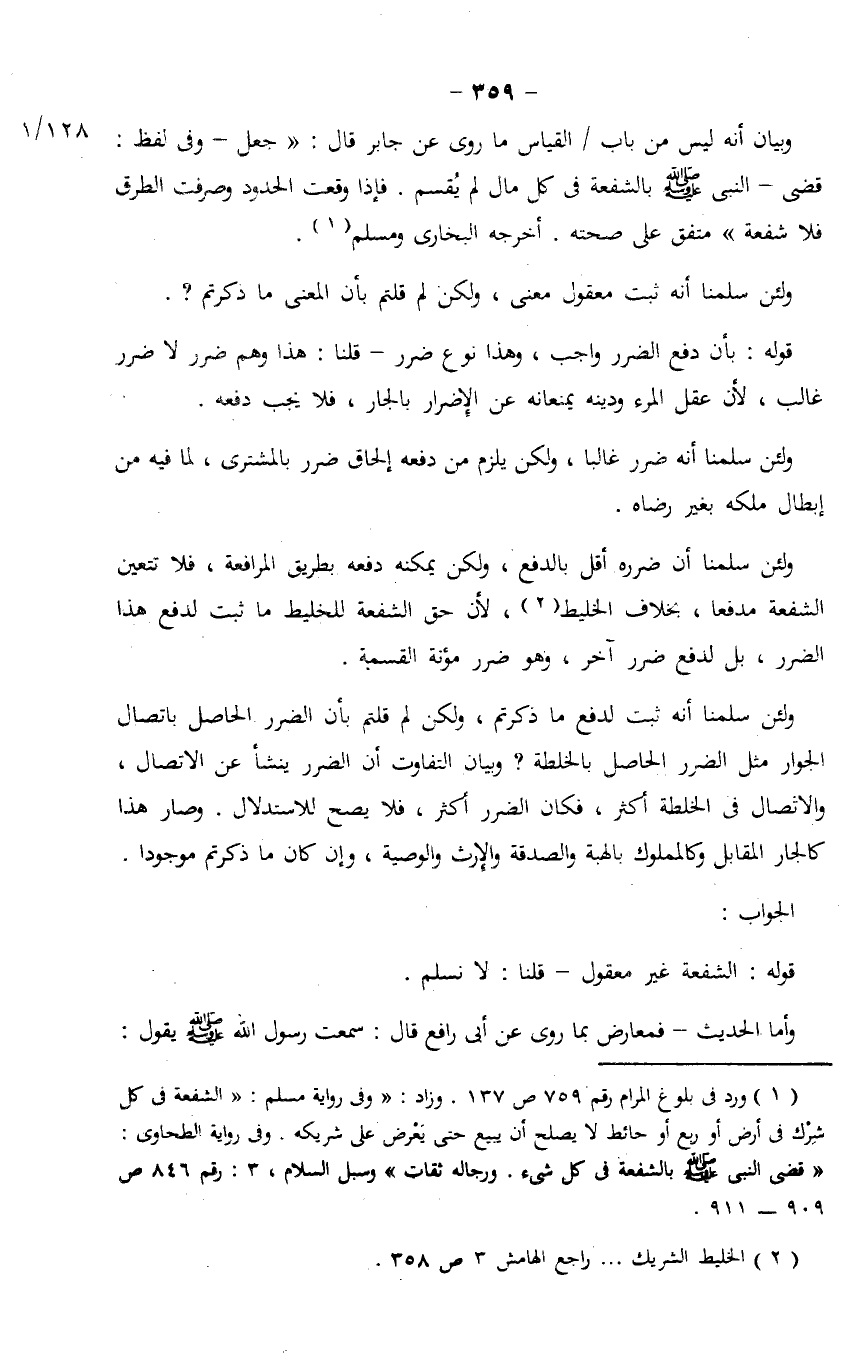 – ٣٥٩ –
١/١٢٨
وبيان أنه ليس من باب / القياس ما روى عن جابر قال : « جعل – وفى لفظ :
قضى – النبى ﷺ بالشفعة فى كل مال لم يُقسم . فإذا وقعت الحدود وصرفت الطرق
فلا شفعة » متفق على صحته . أخرجه البخارى ومسلم(١) .
ولئن سلمنا أنه ثبت معقول معنى ، ولكن لم قلتم بأن المعنى ما ذكرتم ? .
قوله : بأن دفع الضرر واجب ، وهذا نوع ضرر – قلنا : هذا وهم ضرر لا ضرر
غالب ، لأن عقل المرء ودينه يمنعانه عن الإضرار بالجار ، فلا يجب دفعه .
ولئن سلمنا أنه ضرر غالبا ، ولكن يلزم من دفعه إلحاق ضرر بالمشترى ، لما فيه من
إبطال ملكه بغير رضاه .
ولئن سلمنا أن ضرره أقل بالدفع ، ولكن يمكنه دفعه بطريق المرافعة ، فلا تتعين
الشفعة مدفعا ، بخلاف الخليط(٢) ، لأن حق الشفعة للخليط ما ثبت لدفع هذا
الضرر ، بل لدفع ضرر آخر ، وهو ضرر مؤنة القسمة .
ولئن سلمنا أنه ثبت لدفع ما ذكرتم ، ولكن لم قلتم بأن الضرر الحاصل باتصال
الجوار مثل الضرر الحاصل بالخلطة ? وبيان التفاوت أن الضرر ينشأ عن الاتصال ،
والاتصال فى الخلطة أكثر ، فكان الضرر أكثر ، فلا يصح للاستدلال . وصار هذا
كالجار المقابل وكالمملوك بالهبة والصدقة والإرث والوصية ، وإن كان ما ذكرتم موجودا .
الجواب :
قوله : الشفعة غير معقول – قلنا : لا نسلم .
وأما الحديث – فمعارض بما روى عن أبى رافع قال : سمعت رسول الله ﷺ يقول :
( ١ ) ورد فى بلوغ المرام رقم ٧٥٩ ص ١٣٧ . وزاد : « وفى رواية مسلم : « الشفعة فى كل
شِرْك فى أرض أو ربع أو حائط لا يصلح أن يبيع حتى يَعْرض على شريكه . وفى رواية الطحاوى :
« قضى النبى ﷺ بالشفعة فى كل شىء . ورجاله ثقات » وسبل السلام ، ٣ : رقم ٨٤٦ ص
٩٠٩ – ٩١١ .
( ٢ ) الخليط الشريك ... راجع الهامش ٣ ص ٣٥٨ .